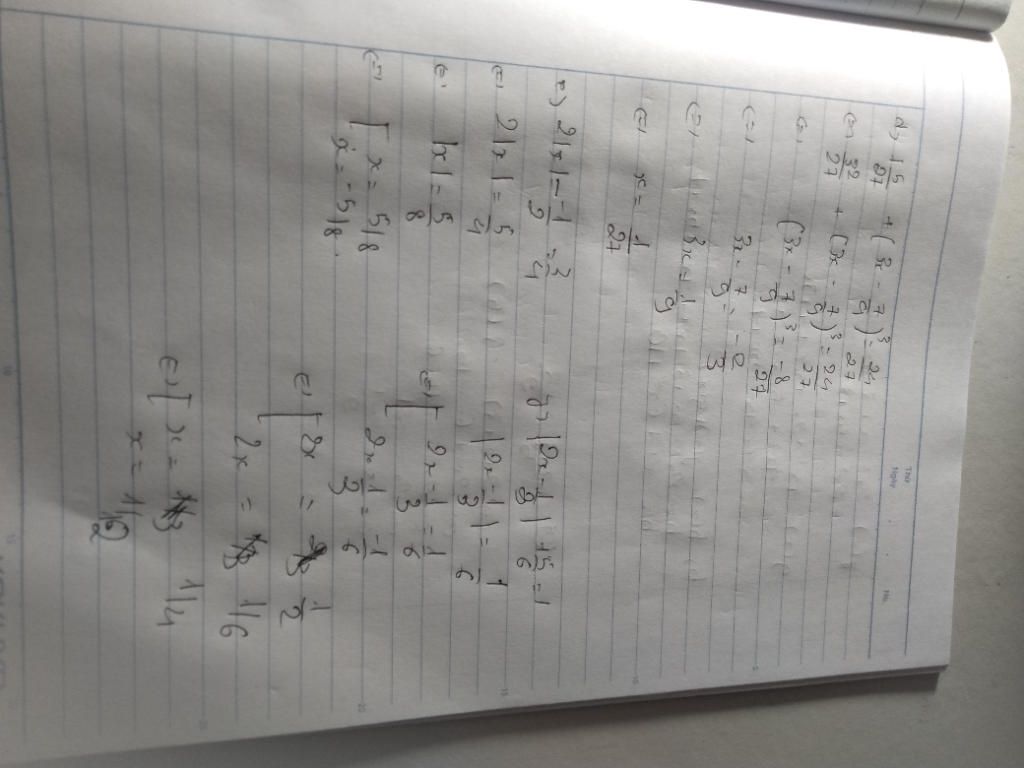 Thứ
Ngày
No.
d) 15/27 + (3x - 7/9)^3 = 24/27
<=> 32/27 + (3x - 7/9)^3 = 24/27
<=> (3x - 7/9)^3 = -8/27
<=> 3x - 7/9 = -2/3
<=> 3x = 1/9
<=> x = 1/27
e) 2|x| - 1/2 = 3/4
<=> 2|x| = 5/4
<=> |x| = 5/8
<=> [ x = 5/8
x = -5/8
|2x - 1/3| + 5/6 = 1
|2x - 1/3| = 1/6
<=> [ 2x - 1/3 = 1/6
2x - 1/3 = -1/6
<=> [ 2x = 1/2
2x = 1/6
<=> [ x = 1/4
x = 1/12